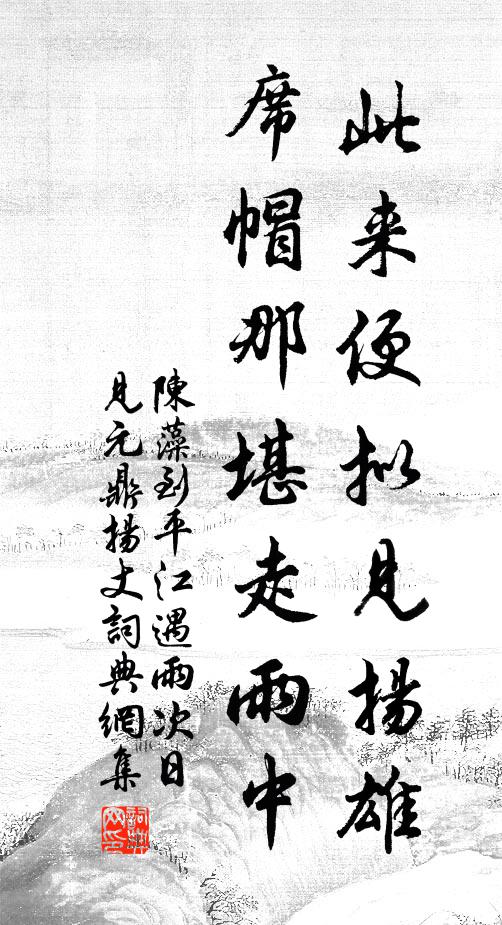 此来便拟見揚雄
席帽那堪走雨中
陳藻到平江遇雨次日
見元鼎揚丈詞典網集